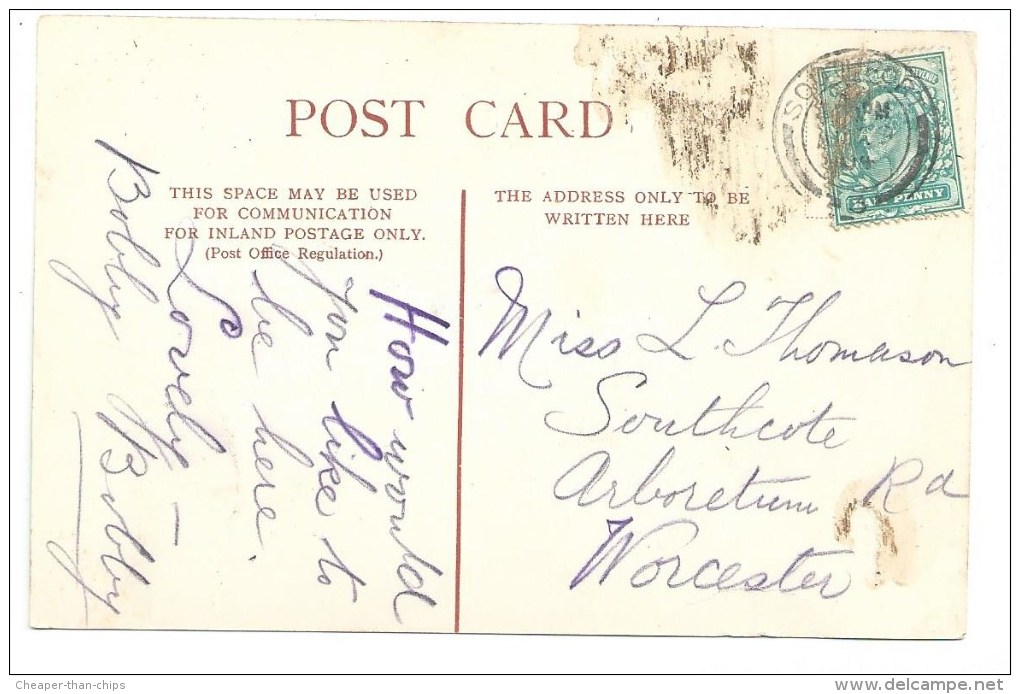 POST CARD
THIS SPACE MAY BE USED
FOR COMMUNICATION
FOR INLAND POSTAGE ONLY.
(Post Office Regulation.)
THE ADDRESS ONLY TO BE
WRITTEN HERE
How would
you like to
be here.
Lovely –
Bobby
Miss L. Thomason
Southcote
Arboretum Rd
Worcester
HALF PENNY
Cheaper-than-chips
www.delcampe.net